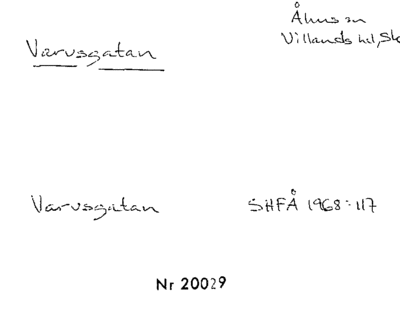 Åhus sn
Villands hd, Sk
Varvsgatan
Varvsgatan SHFÅ 1968:117
Nr 20029